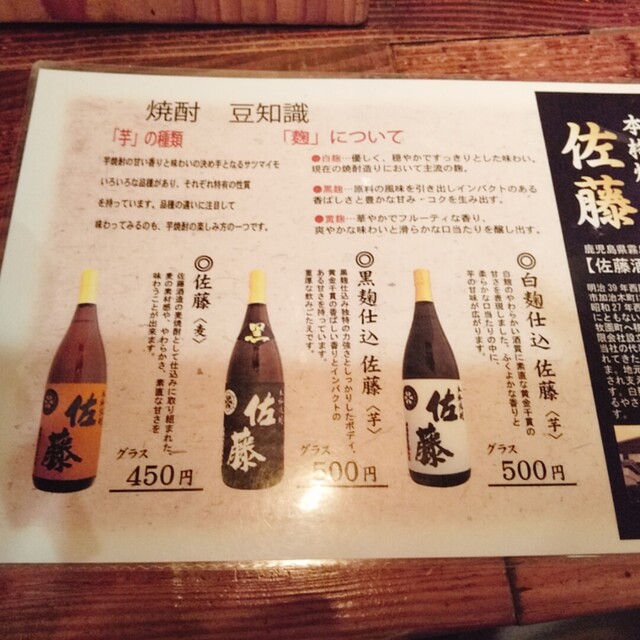 焼酎 豆知識
「芋」の種類
芋焼酎の甘い香りと味わいの決め手となるサツマイモ
いろいろな品種があり、それぞれ特有の性質
を持っています、品種の違いに注目して
味わってみるのも、芋焼酎の楽しみ方の一つです。
「麹」について
●白麹…優しく、穏やかですっきりとした味わい。
現在の焼酎造りにおいて主流の麹。
●黒麹…原料の風味を引き出しインパクトのある
香ばしさと豊かな甘み・コクを生み出す。
●黄麹…華やかでフルーティな香り、
爽やかな味わいと滑らかな口当たりを醸し出す。
◎白麹仕込 佐藤〈芋〉
白麹のやわらかい酒質に素直な黄金千貫の
甘さを表現しました、ふくよかな香りと
柔らかな口当たりの中に、
芋の甘味が広がります。
グラス
500円
◎黒麹仕込 佐藤〈芋〉
黒麹仕込み独特の力強さとしっかりしたボディ、
黄金千貫の香ばしい香りとインパクトの
ある甘さを持っています。
重厚な飲みごたえです。
グラス
500円
◎佐藤〈麦〉
佐藤酒造の麦焼酎として仕込みに取り組まれた、
麦の素材感や、やわらかさ、素直な甘さを
味わうことが出来ます。
グラス
450円
佐藤
黒
佐藤
佐藤
佐藤
鹿児島県霧
【佐藤酒